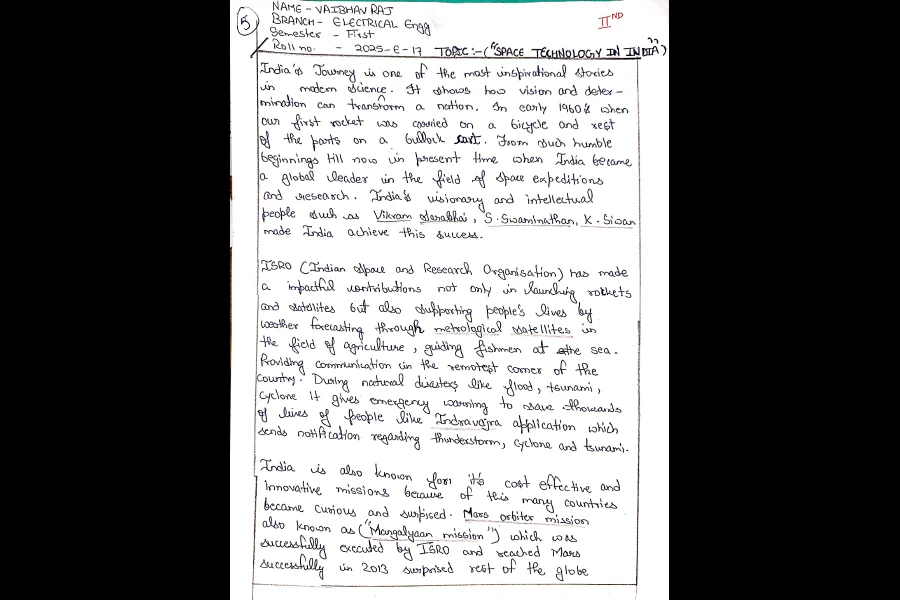 5
NAME - VAIBHAV RAJ
BRANCH - ELECTRICAL Engg
Semester - First
Roll no. - 2025-E-17 TOPIC:- ("SPACE TECHNOLOGY IN INDIA")
IIND
India's Journey is one of the most inspirational stories
in modern science. It shows how vision and deter-
mination can transform a nation. In early 1960's when
our first rocket was carried on a bicycle and rest
of the parts on a bullock cart. From such humble
beginnings till now in present time when India became
a global leader in the field of space expeditions
and research. India's visionary and intellectual
people such as Vikram Sarabhai, S. Swaminathan, K. Sivan
made India achieve this success.
ISRO (Indian Space and Research Organisation) has made
a impactful contributions not only in launching rockets
and satellites but also supporting people's lives by
weather forecasting through metrological satellites in
the field of agriculture, guiding fishmen at the sea.
Providing communication in the remotest corner of the
country. During natural disasters like flood, tsunami,
cyclone it gives emergency warning to save thousands
of lives of people like Indravajra application which
sends notification regarding thunderstorm, cyclone and tsunami.
India is also known for it's cost effective and
innovative missions because of this many countries
became curious and surpised. Mars orbiter mission
also known as ("Mangalyaan mission") which was
successfully executed by ISRO and reached Mars
successfully in 2013 surprised rest of the globe